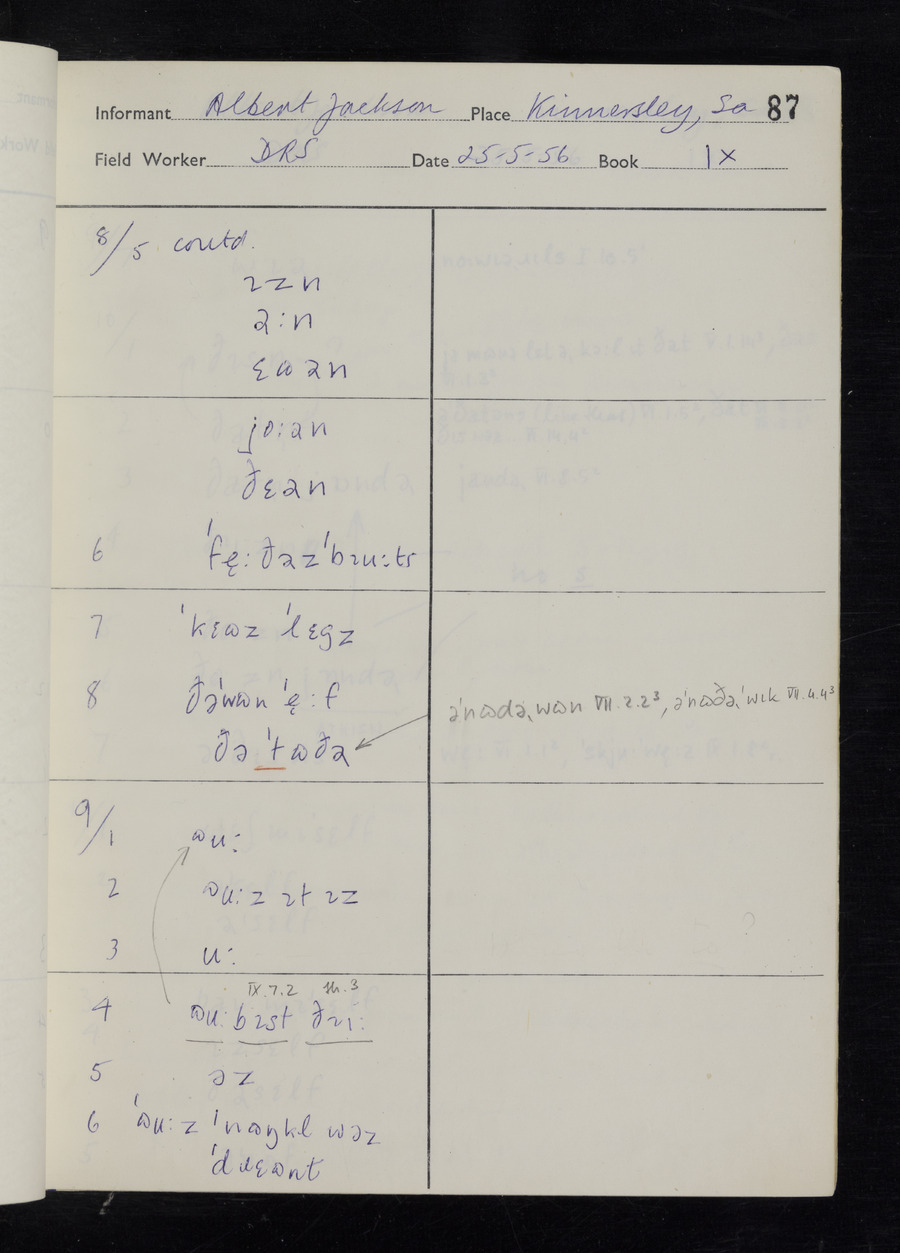 Informant Albert Jackson Place Kinnersley, Sa 87
Field Worker DRS Date 25-5-56 Book IX
8/5 contd.
ɪzn
ə:n
ɛɷən
jo:ən
ðɛən
6 ˈfę:ðəzˈbɹu:tʃ
7 ˈkɛɷz ˈlɛgz
8 ðəˈwɷn ˈę:f
əˈnɷdəˌwɷn VII.2.2³, əˈnɷðəˈwɪk VII.4.4³
ðəˈtɷðə
9/1 ɷu:
2 ɷu:z ɪt ɪz
3 u:
IX.7.2 sh.3
4 ɷu: bɪst ðɪi:
5 əz
6 ˈɷu:z ˈnɷŋkl wəz
ˈdɹɛɷnt